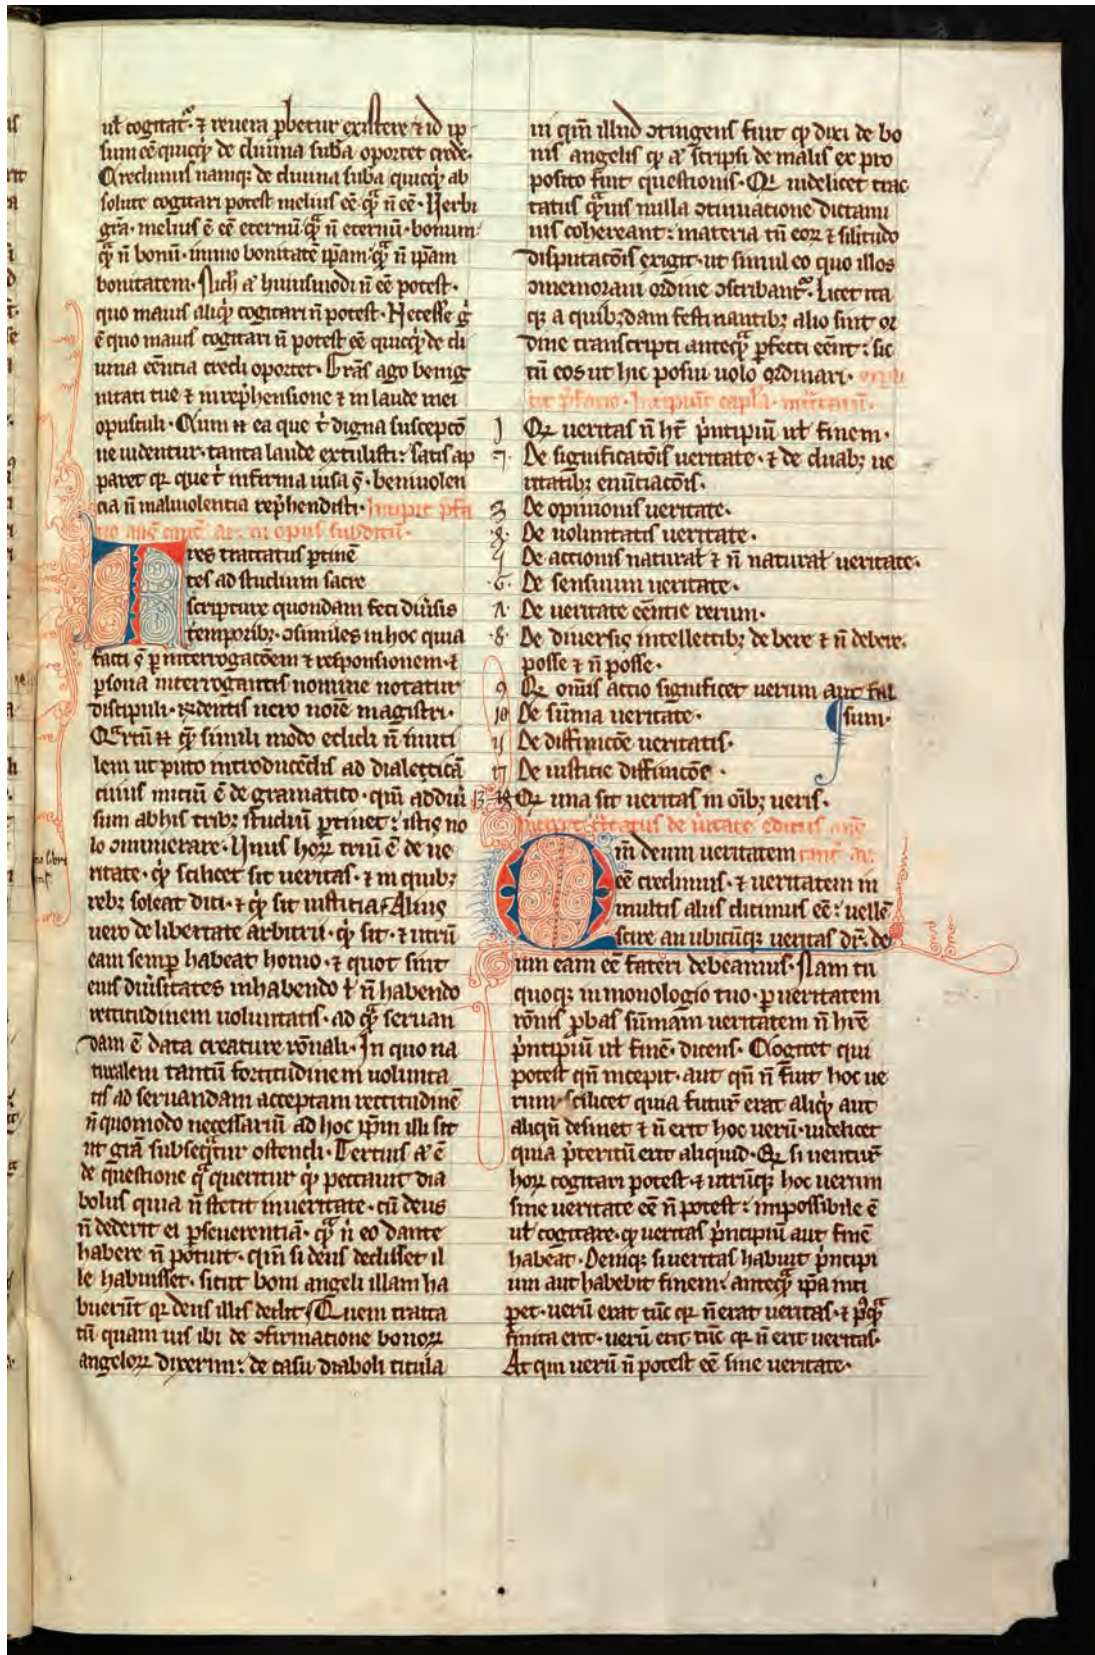 ul cogitat᷒. ⁊ reuera ꝓbetur existere ⁊ id ip
sum eē quicq̨ de diuina suƀa oportet crede.
Credimus namq; de diuina suƀa quicq̨ ab
solute cogitari potest melius eē q̄ᵃ n̄ eē. Verbi
grā. melius ē eē eternū q̄ᵃ n̄ eternū. bonum
q̄ᵃ n̄ bonū. immo bonitatē ip̄am q̄ᵃ n̄ ip̄am
bonitatem. Nich̄ aͭ huiusmodi n̄ eē potest.
quo maius aliqͥd cogitari n̄ potest. Necesse gͥ
ē quo maius cogitari n̄ potest eē quicq̨ de di
uina eēntia credi oportet. Grās ago benig
nitati tue ⁊ in rep̄hensione ⁊ in laude mei
opusculi. Cum n̄ ea que tͥ digna susceptō
ne uidentur. tanta laude extulisti: satis ap
paret qꝛ que tͥ infirma uisa s̄. beniuolen
cia n̄ maliuolentia rep̄hendisti. Incipit p̄fa
res tractatus ꝑtinē
tes ad studium sacre
scripture quondam feci diūsis
temporibꝫ. ↄsimiles in hoc quia
facti s̄ ꝑ interrogatōem ⁊ responsionem. ⁊
ꝑsona interrogantis nomine notatur
discipuli. rn̄dentis uero noīe magistri.
Qͣrtū n̄ q̄ᵃ simili modo edidi n̄ inuti
lem ut puto introducēdis ad dialecticā
cuius iniciū ē de gramatico. qm̄ ad diū
sum ab his tribꝫ studiū ꝑtinet: istis no
lo ↄnumerare. Vnus hoꝝ triū ē de ue
ritate. qͥd scilicet sit ueritas. ⁊ in quibꝫ
rebꝫ soleat dici. ⁊ qͥd sit iusticia. Alius
uero de libertate arbitrii. qͥd sit. ⁊ utrū
eam semꝑ habeat homo. ⁊ quot sint
eius diūsitates in habendo ł n̄ habendo
rectitudinem uoluntatis. ad q̄ᵃ seruan
dam ē data creature rōnali. In quo na
turalem tantū fortitudinem uolunta
tis ad seruandam acceptam rectitudinē
n̄ quomodo necessariū ad hoc ip̄m illi sit
ut grā subseq̄ᵃtur ostendi. Tercius aͭ ē
de questione q̄ᵃ queritur qͥd peccauit dia
bolus quia n̄ stetit in ueritate. cū deus
n̄ dederit ei ꝑseuerentiā. q̄ᵃ n̄ eo dante
habere n̄ potuit. qm̄ si deus dedisset il
le habuisset. sicut boni angeli illam ha
buerūt qꝛ deus illis dedit. Quem tracta
tū quam uis ibi de ↄfirmatione bonoꝝ
angeloꝝ dixerim: de casu diaboli titula
ui qm̄ illud ↄtingens fuit qđ dixi de bo
nis angelis qđ aͭ scripsi de malis ex pro
posito fuit questionis. Qꝛ uidelicet trac
tatus q̄ᵃuis nulla ↄtinuatione dictami
nis cohereant: materia tn̄ eoꝝ ⁊ silitudo
disputatōis exigit. ut simul eo quo illos
ↄmemoraui ordine ↄscribant᷒. Licet ita
qꝫ a quibꝫdam festinantibꝫ alio sint or
dine transcripti anteq̄ᵃ ꝑfecti eēnt: sic
tn̄ eos ut hic posui uolo ordinari. expli
cit p̄facio. Incipiūt capl̄a.
1 Qꝛ ueritas n̄ ht̄ pͥncipiū ul finem.
2 De significatōis ueritate. ⁊ de duabꝫ ue
ritatibꝫ enūciatōis.
3 De opinionis ueritate.
4 De uoluntatis ueritate.
5 De actionis natural ⁊ n̄ natural ueritate.
6 De sensuum ueritate.
7 De ueritate eēntie rerum.
8 De diuersis intellectibꝫ debere ⁊ n̄ debere.
posse ⁊ n̄ posse.
9 Qꝛ om̄is actio significet uerum aut fal
10 De sūma ueritate. ¶ sum.
11 De diffinicōe ueritatis.
12 De iusticie diffinicōe.
13 Qꝛ una sit ueritas in oībꝫ ueris.
Incipit tͣctatus de ūitate editus
Qm̄ deum ueritatem
eē credimus. ⁊ ueritatem in
multis aliis dicimus eē: uellē
scire an ubicūqꝫ ueritas dr̄. de
um eam eē fateri debeamus. Nam tu
quoqꝫ in monologio tuo. ꝑ ueritatem
rōnis ꝓbas sūmam ueritatem n̄ hr̄e
pͥncipiū ul finē. dicens. Cogitet qui
potest qn̄ incepit. aut qn̄ n̄ fuit hoc ue
rum. scilicet quia futur̄ erat aliqͥd aut
aliqn̄ desinet ⁊ n̄ erit hoc uerū. uidelicet
quia p̄teritū erit aliquid. Qꝛ si neutrū
hoꝝ cogitari potest. ⁊ utrūqꝫ hoc uerum
sine ueritate eē n̄ potest: impossibile ē
ul cogitare. qđ ueritas pͥncipiū aut finē
habeat. Deniqꝫ si ueritas habuit pͥncipi
um aut habebit finem: anteq̄ᵃ ip̄a inci
pet. uerū erat tūc qꝛ n̄ erat ueritas. ⁊ pꝰq̄ᵃ
finita erit. uerū erit tūc qꝛ n̄ erit ueritas.
At qui uerū n̄ potest eē sine ueritate.